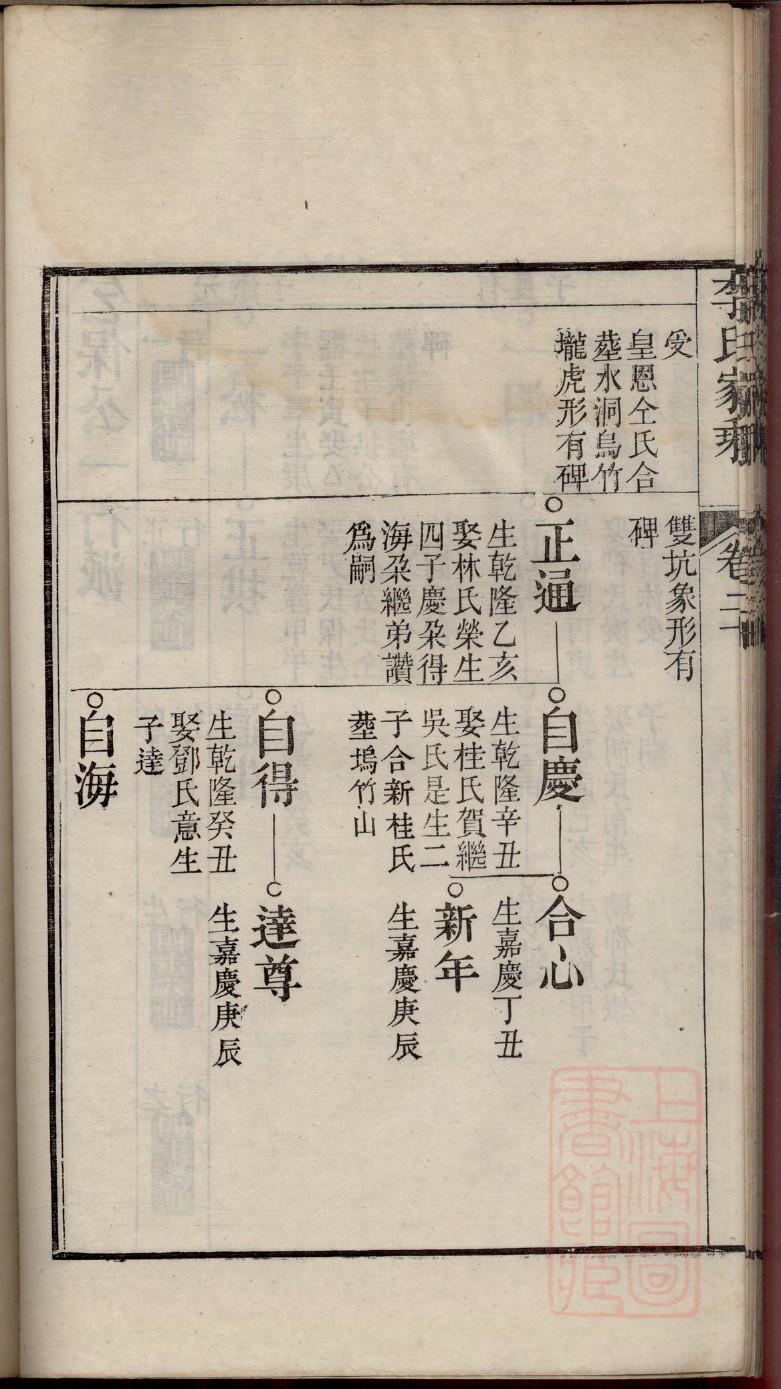 李氏家乘
卷二
受
皇恩仝氏合
塟水洞烏竹
壠虎形有碑
雙坑象形有
碑
正通
生乾隆乙亥
娶林氏榮生
四子慶朶得
海朶繼弟讚
爲嗣
自慶
生乾隆辛丑
娶桂氏賀繼
吳氏是生二
子合新桂氏
塟塢竹山
合心
生嘉慶丁丑
新年
生嘉慶庚辰
自得
生乾隆癸丑
娶鄧氏意生
子達
達尊
生嘉慶庚辰
自海
上海圖
書館藏